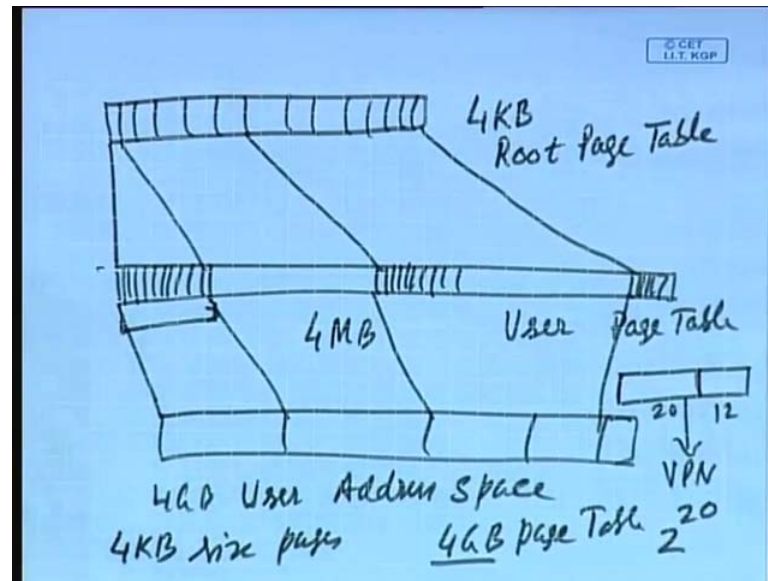 © CET
I.I.T. KGP
4KB
Root Page Table
4 MB User Page Table
20 12
VPN
4GB User Address Space
4KB size pages 4GB page Table 2^20